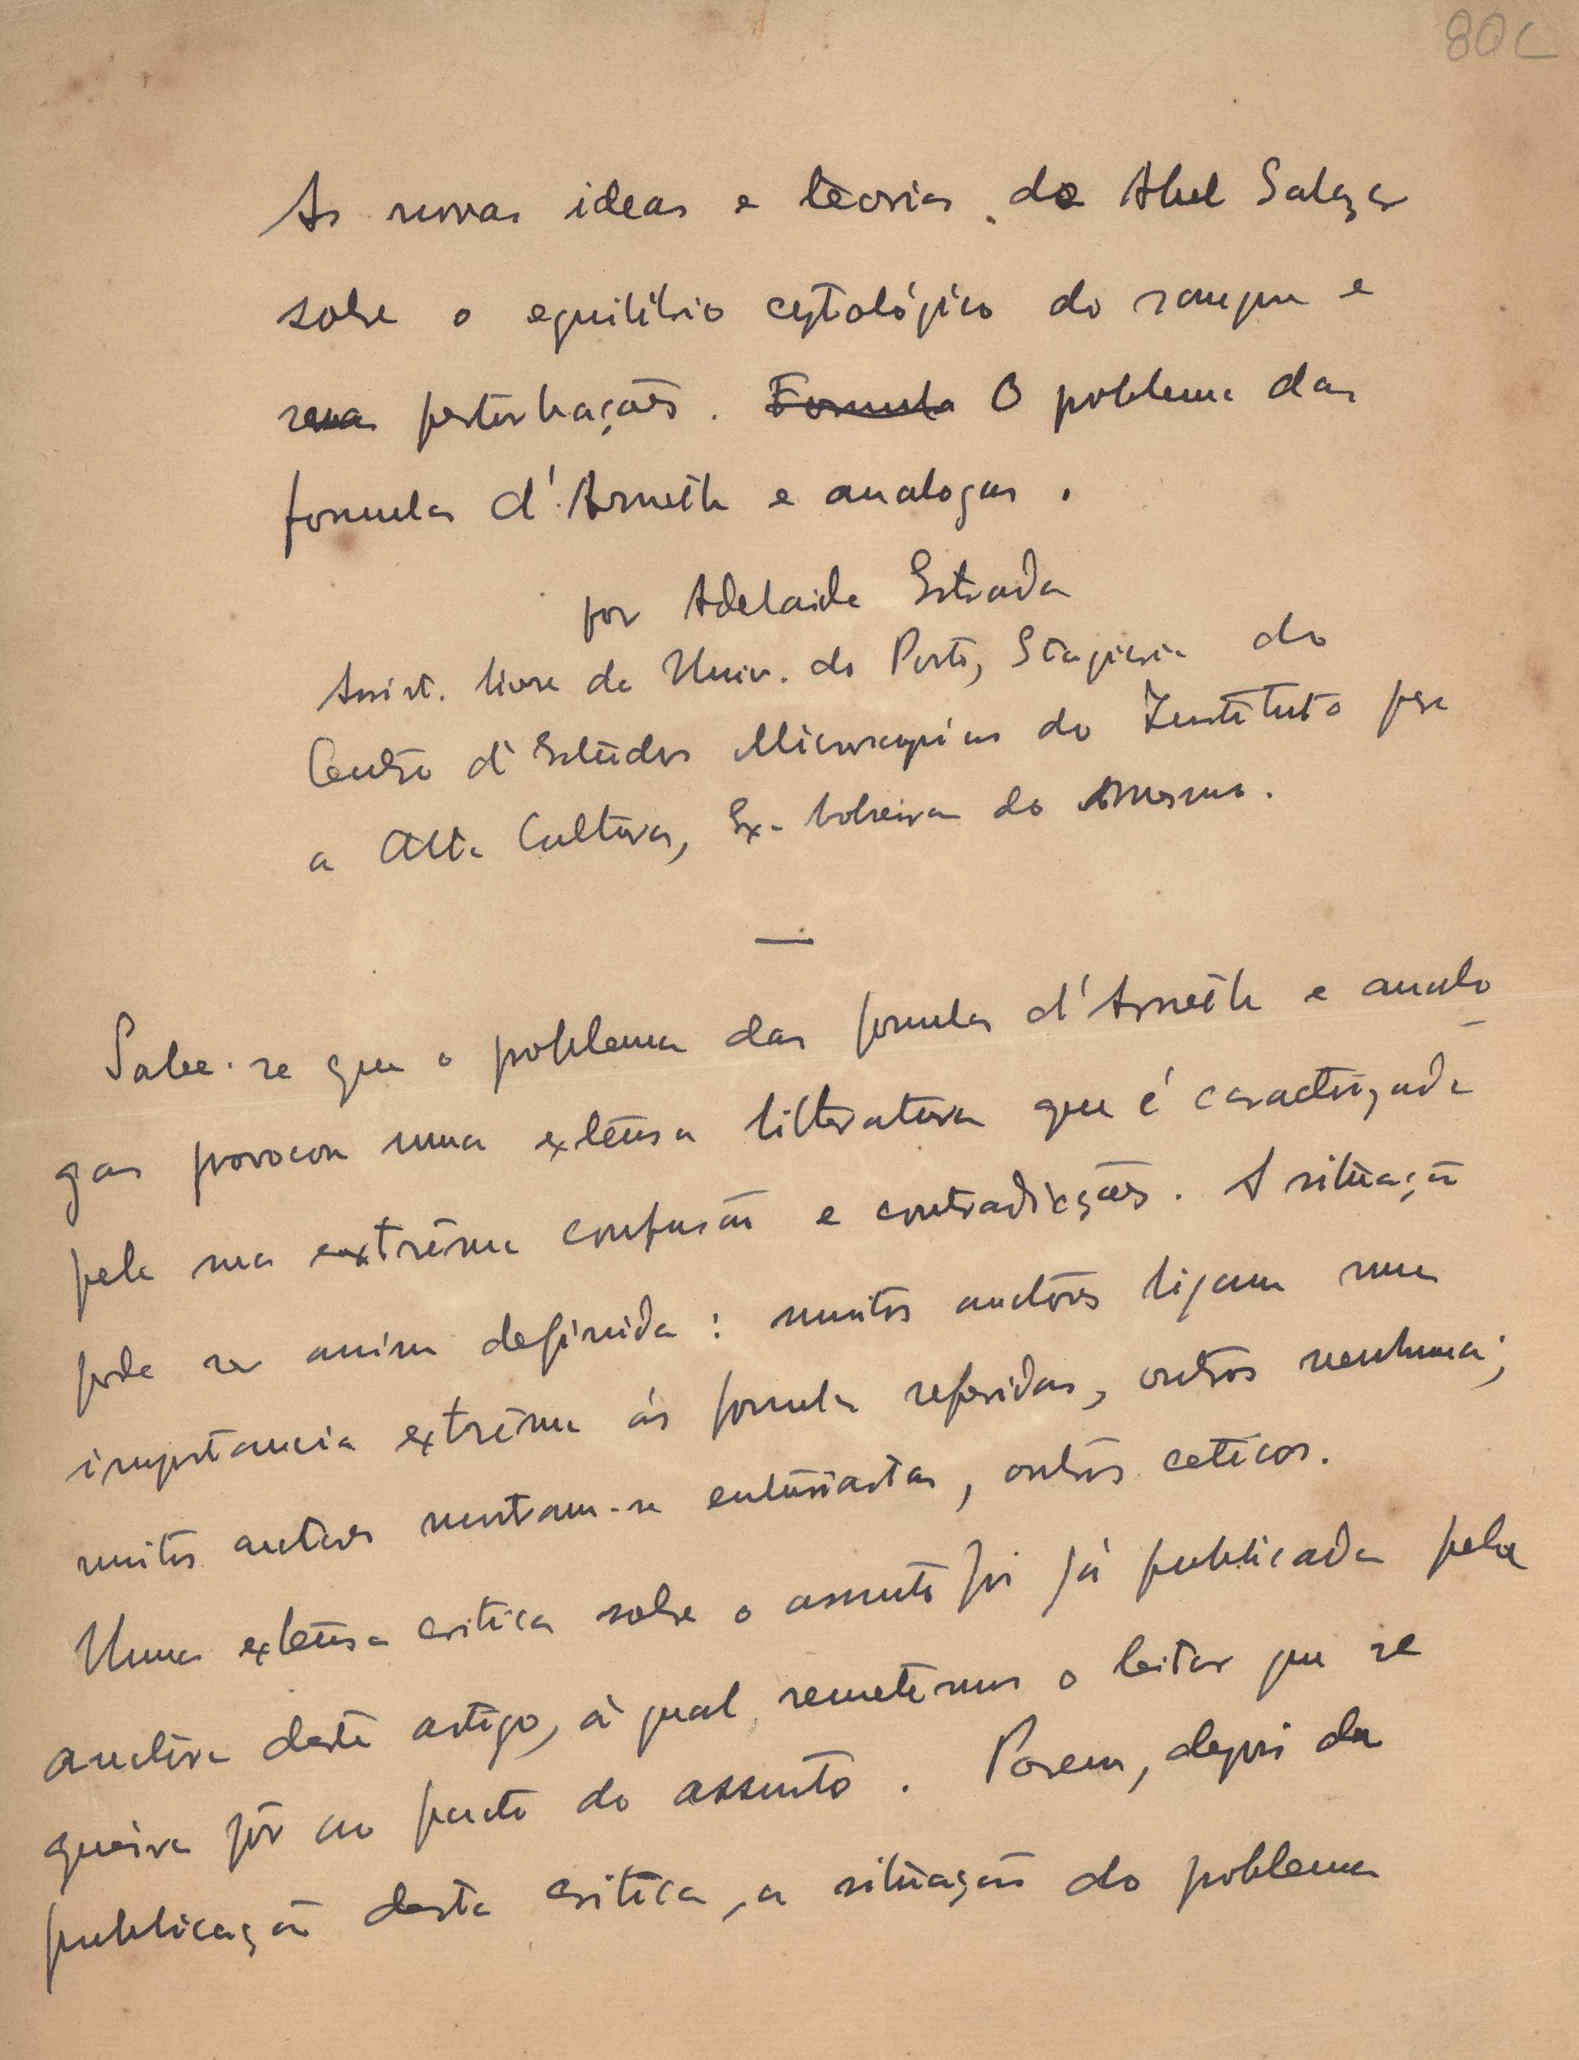 80c
As novas ideas e teorias de Abel Salazar
sobre o equilibrio cytológico do sangue e
suas perturbações. Formula O problema das
formulas d'Arneth e analogas.
por Adelaide Estrada
Assist. livre da Univ. do Porto, Stagiaria do
Centro d'Estudos Microscopicos do Instituto para
a Alta Cultura, Ex-bolseira do mesmo.
Sabe-se que o problema das formulas d'Arneth e analo-
gas provocou uma extensa litteratura que é caracterizada
pela sua extrêma confusão e contradicções. A situação
pode ser assim definida: muitos auctores ligam uma
importancia extrêma ás formulas referidas, outros nenhuma;
muitos auctores mostram-se entusiastas, outros ceticos.
Uma extensa critica sobre o assunto foi já publicada pela
auctora deste artigo, á qual remetemos o leitor que se
queira pôr ao facto do assunto. Porem, depois da
publicação desta critica, a situação do problema